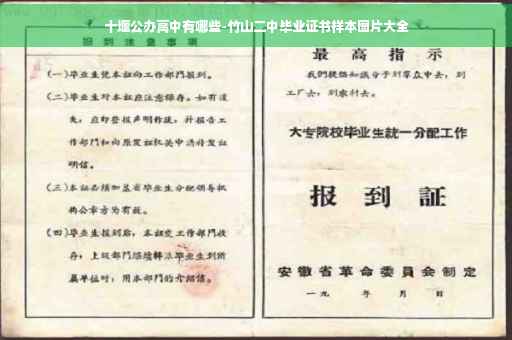 十堰公办高中有哪些-竹山二中毕业证书样本图片大全
报到注意事项
(一)毕业生凭本证向工作部门报到。
(二)毕业生对本证应注意保存。如有遗
失，应即登报声明作废，并报告工
作部门和向原发证机关申请补发证
明信。
(三)本证必须加盖省毕业生分配领导机
构公章方为有效。
(四)毕业生报到后，本证交工作部门收
存；上级部门
属单位时，用本部门的介绍信。
最高指示
我们提倡知识分子到群众中去，到
工厂去，到农村去。
大专院校毕业生統一分配工作
报到証
安徽省革命委員会制定
一九 年 月 日